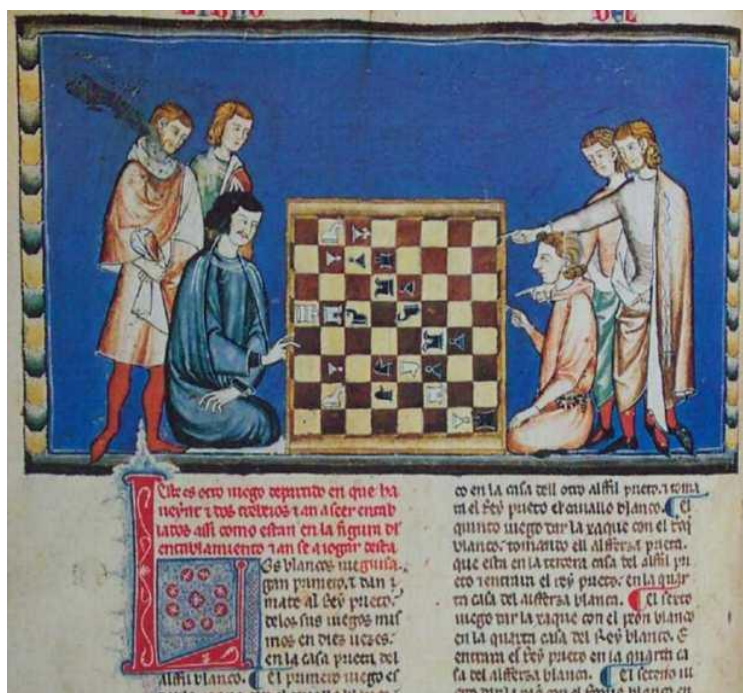 Este es otro iuego departido en que ha
ueynte τ dos trebeios τ an a seer entab
lados assi como estan en la figura del
entablamiento τ an se a iogar desta
guisa.
Los blancos iue
gan primero. τ dan
mate al Rey prieto.
delos sus iuegos mis
mos en diez uezes.
en la casa prieta del
alffil blanco. ¶ El primero iuego es
co en la casa dell otro alffil prieto. τ toma
ra el Rey prieto el cauallo blanco. ¶ El
quinto iuego dar la xaque con el
blanco. tomando ell alfferza prieta.
que esta en la tercera casa del alffil pri
eto τ entrara el rey prieto. en la quar
ta casa del alfferza blanca. ¶ El sexto
iuego dar la xaque con el peon blanco
en la quarta casa del Rey blanco. E
entrara el Rey prieto en la quarta ca
sa del alfferza blanca. ¶ El seteno iu